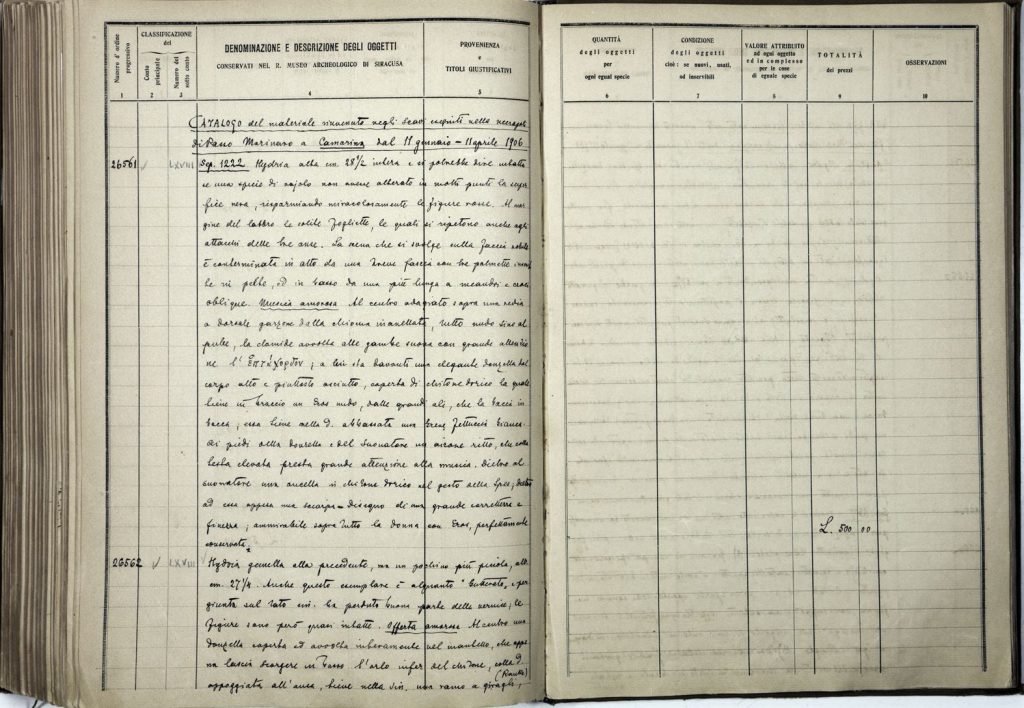 Numero d'ordine progressivo
CLASSIFICAZIONE del
Conto principale
Numero del sotto conto
DENOMINAZIONE E DESCRIZIONE DEGLI OGGETTI
CONSERVATI NEL R. MUSEO ARCHEOLOGICO DI SIRACUSA
PROVENIENZA
e
TITOLI GIUSTIFICATIVI
1 2 3 4 5
CATALOGO del materiale rinvenuto negli scavi eseguiti nella necropoli
di Passo Marinaro a Camarina dal 11 gennaio - 11 aprile 1906
26561 √ LXVIII Sep. 1222 Hydria alta cm. 28 1/2 intera e si potrebbe dire intatta
se una specie di vajolo non avesse alterato in molti punti la super
ficie nera, risparmiando miracolosamente le figure rosse. Al mar
gine del labbro le solite fogliette, le quali si ripetono anche agli
attacchi delle tre anse. La scena che si svolge sulla faccia nobile
è conterminata in alto da una breve fascia con tre palmette
be in petto, ed in basso da una più lunga a meandri e croci
oblique. Musica amorosa Al centro adagiato sopra una sedia
a dorsale garzone dalla chioma inanellata, tutto nudo sino al
pube, la clamide avvolta alle gambe suona con grande attenzio
ne l' ἑπτάχορδον; a lui sta davanti una elegante donzella dal
corpo alto e piuttosto asciutto, coperta di chitone dorico la quale
tiene in braccio un Eros nudo, dalle grandi ali, che la bacia in
bocca; essa tiene nella d. abbassata una breve fettuccia bianca.
Ai piedi della donzella e del suonatore un airone ritto, che colla
testa elevata presta grande attenzione alla musica. Dietro al
suonatore una ancella in chitone dorico nel gesto della Spes; dietro
ad essa appesa una scarpa - Disegno di una grande correttezza e
finezza; ammirabile sopra tutto la donna con Eros, perfettamente
conservata.
26562 √ LXVIII Hydria gemella alla precedente, ma un pochino più piccola, alt.
cm. 27 1/4. Anche questo esemplare è alquanto butterato, e per
giunta sul lato sin. ha perduto buona parte della vernice; le
figure sono però quasi intatte. Offerta amorosa Al centro una
donzella coperta ed avvolta interamente nel mantello, che appe
na lascia scorgere in basso l'orlo infer. del chitone, colla d.
appoggiata all'anca, tiene nella sin. una ramo a
QUANTITÀ
degli oggetti
per
ogni egual specie
CONDIZIONE
degli oggetti
cioè: se nuovi, usati,
od inservibili
VALORE ATTRIBUITO
ad ogni oggetto
ed in complesso
per le cose
di eguale specie
TOTALITÀ
dei prezzi
OSSERVAZIONI
6 7 8 9 10
L. 500 00